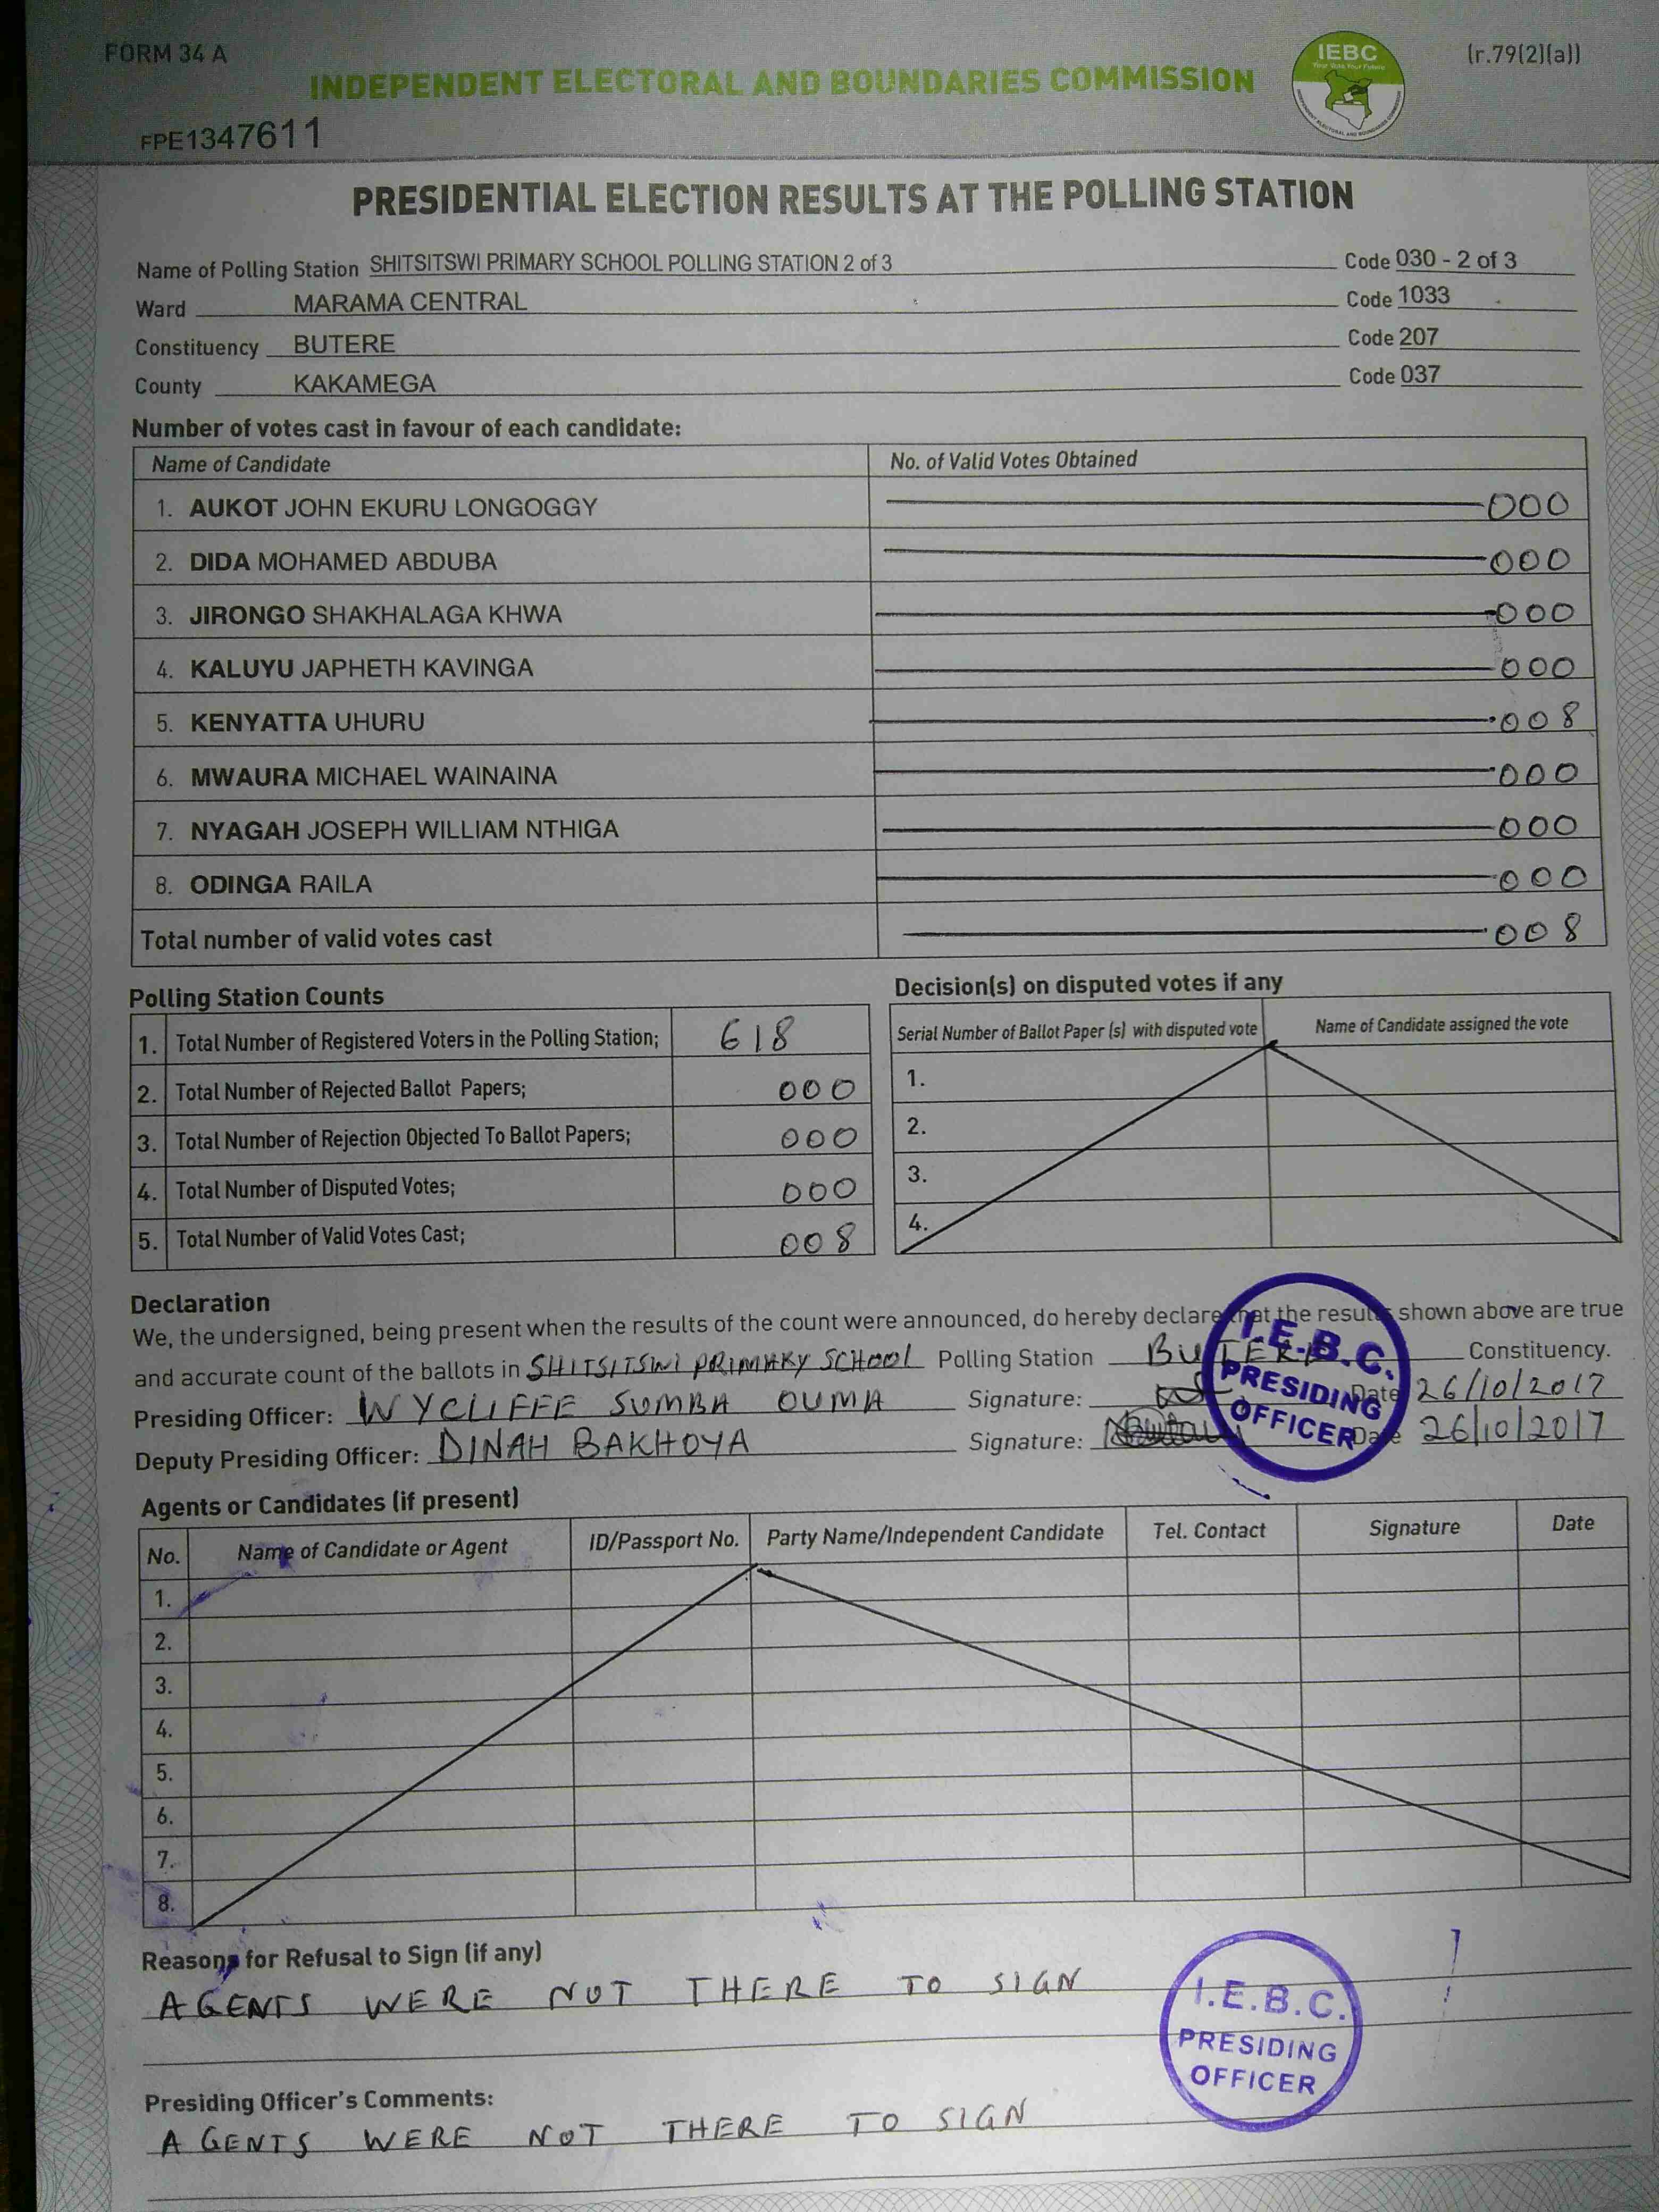 FORM 34 A
IEBC
Your Vote, Your Future
INDEPENDENT ELECTORAL AND BOUNDARIES COMMISSION
(r.79(2)(a))
INDEPENDENT ELECTORAL AND BOUNDARIES COMMISSION
FPE1347611
PRESIDENTIAL ELECTION RESULTS AT THE POLLING STATION
Name of Polling Station SHITSITSWI PRIMARY SCHOOL POLLING STATION 2 of 3 Code 030 - 2 of 3
Ward MARAMA CENTRAL Code 1033
Constituency BUTERE Code 207
County KAKAMEGA Code 037
Number of votes cast in favour of each candidate:
Name of Candidate No. of Valid Votes Obtained
1. AUKOT JOHN EKURU LONGOGGY 000
2. DIDA MOHAMED ABDUBA 000
3. JIRONGO SHAKHALAGA KHWA 000
4. KALUYU JAPHETH KAVINGA 000
5. KENYATTA UHURU 008
6. MWAURA MICHAEL WAINAINA 000
7. NYAGAH JOSEPH WILLIAM NTHIGA 000
8. ODINGA RAILA 000
Total number of valid votes cast 008
Polling Station Counts
1. Total Number of Registered Voters in the Polling Station; 618
2. Total Number of Rejected Ballot Papers; 000
3. Total Number of Rejection Objected To Ballot Papers; 000
4. Total Number of Disputed Votes; 000
5. Total Number of Valid Votes Cast; 008
Decision(s) on disputed votes if any
Serial Number of Ballot Paper (s) with disputed vote Name of Candidate assigned the vote
1.
2.
3.
4.
Declaration
We, the undersigned, being present when the results of the count were announced, do hereby declare that the results shown above are true
and accurate count of the ballots in SHITSITSWI PRIMARY SCHOOL Polling Station BUTERE Constituency.
Presiding Officer: WYCLIFFE SUMBA OUMA Signature: Date 26/10/2017
Deputy Presiding Officer: DINAH BAKHOYA Signature: Date 26/10/2017
I.E.B.C.
PRESIDING
OFFICER
Agents or Candidates (if present)
No. Name of Candidate or Agent ID/Passport No. Party Name/Independent Candidate Tel. Contact Signature Date
1.
2.
3.
4.
5.
6.
7.
8.
Reasons for Refusal to Sign (if any)
AGENTS WERE NOT THERE TO SIGN
I.E.B.C.
PRESIDING
OFFICER
Presiding Officer's Comments:
AGENTS WERE NOT THERE TO SIGN